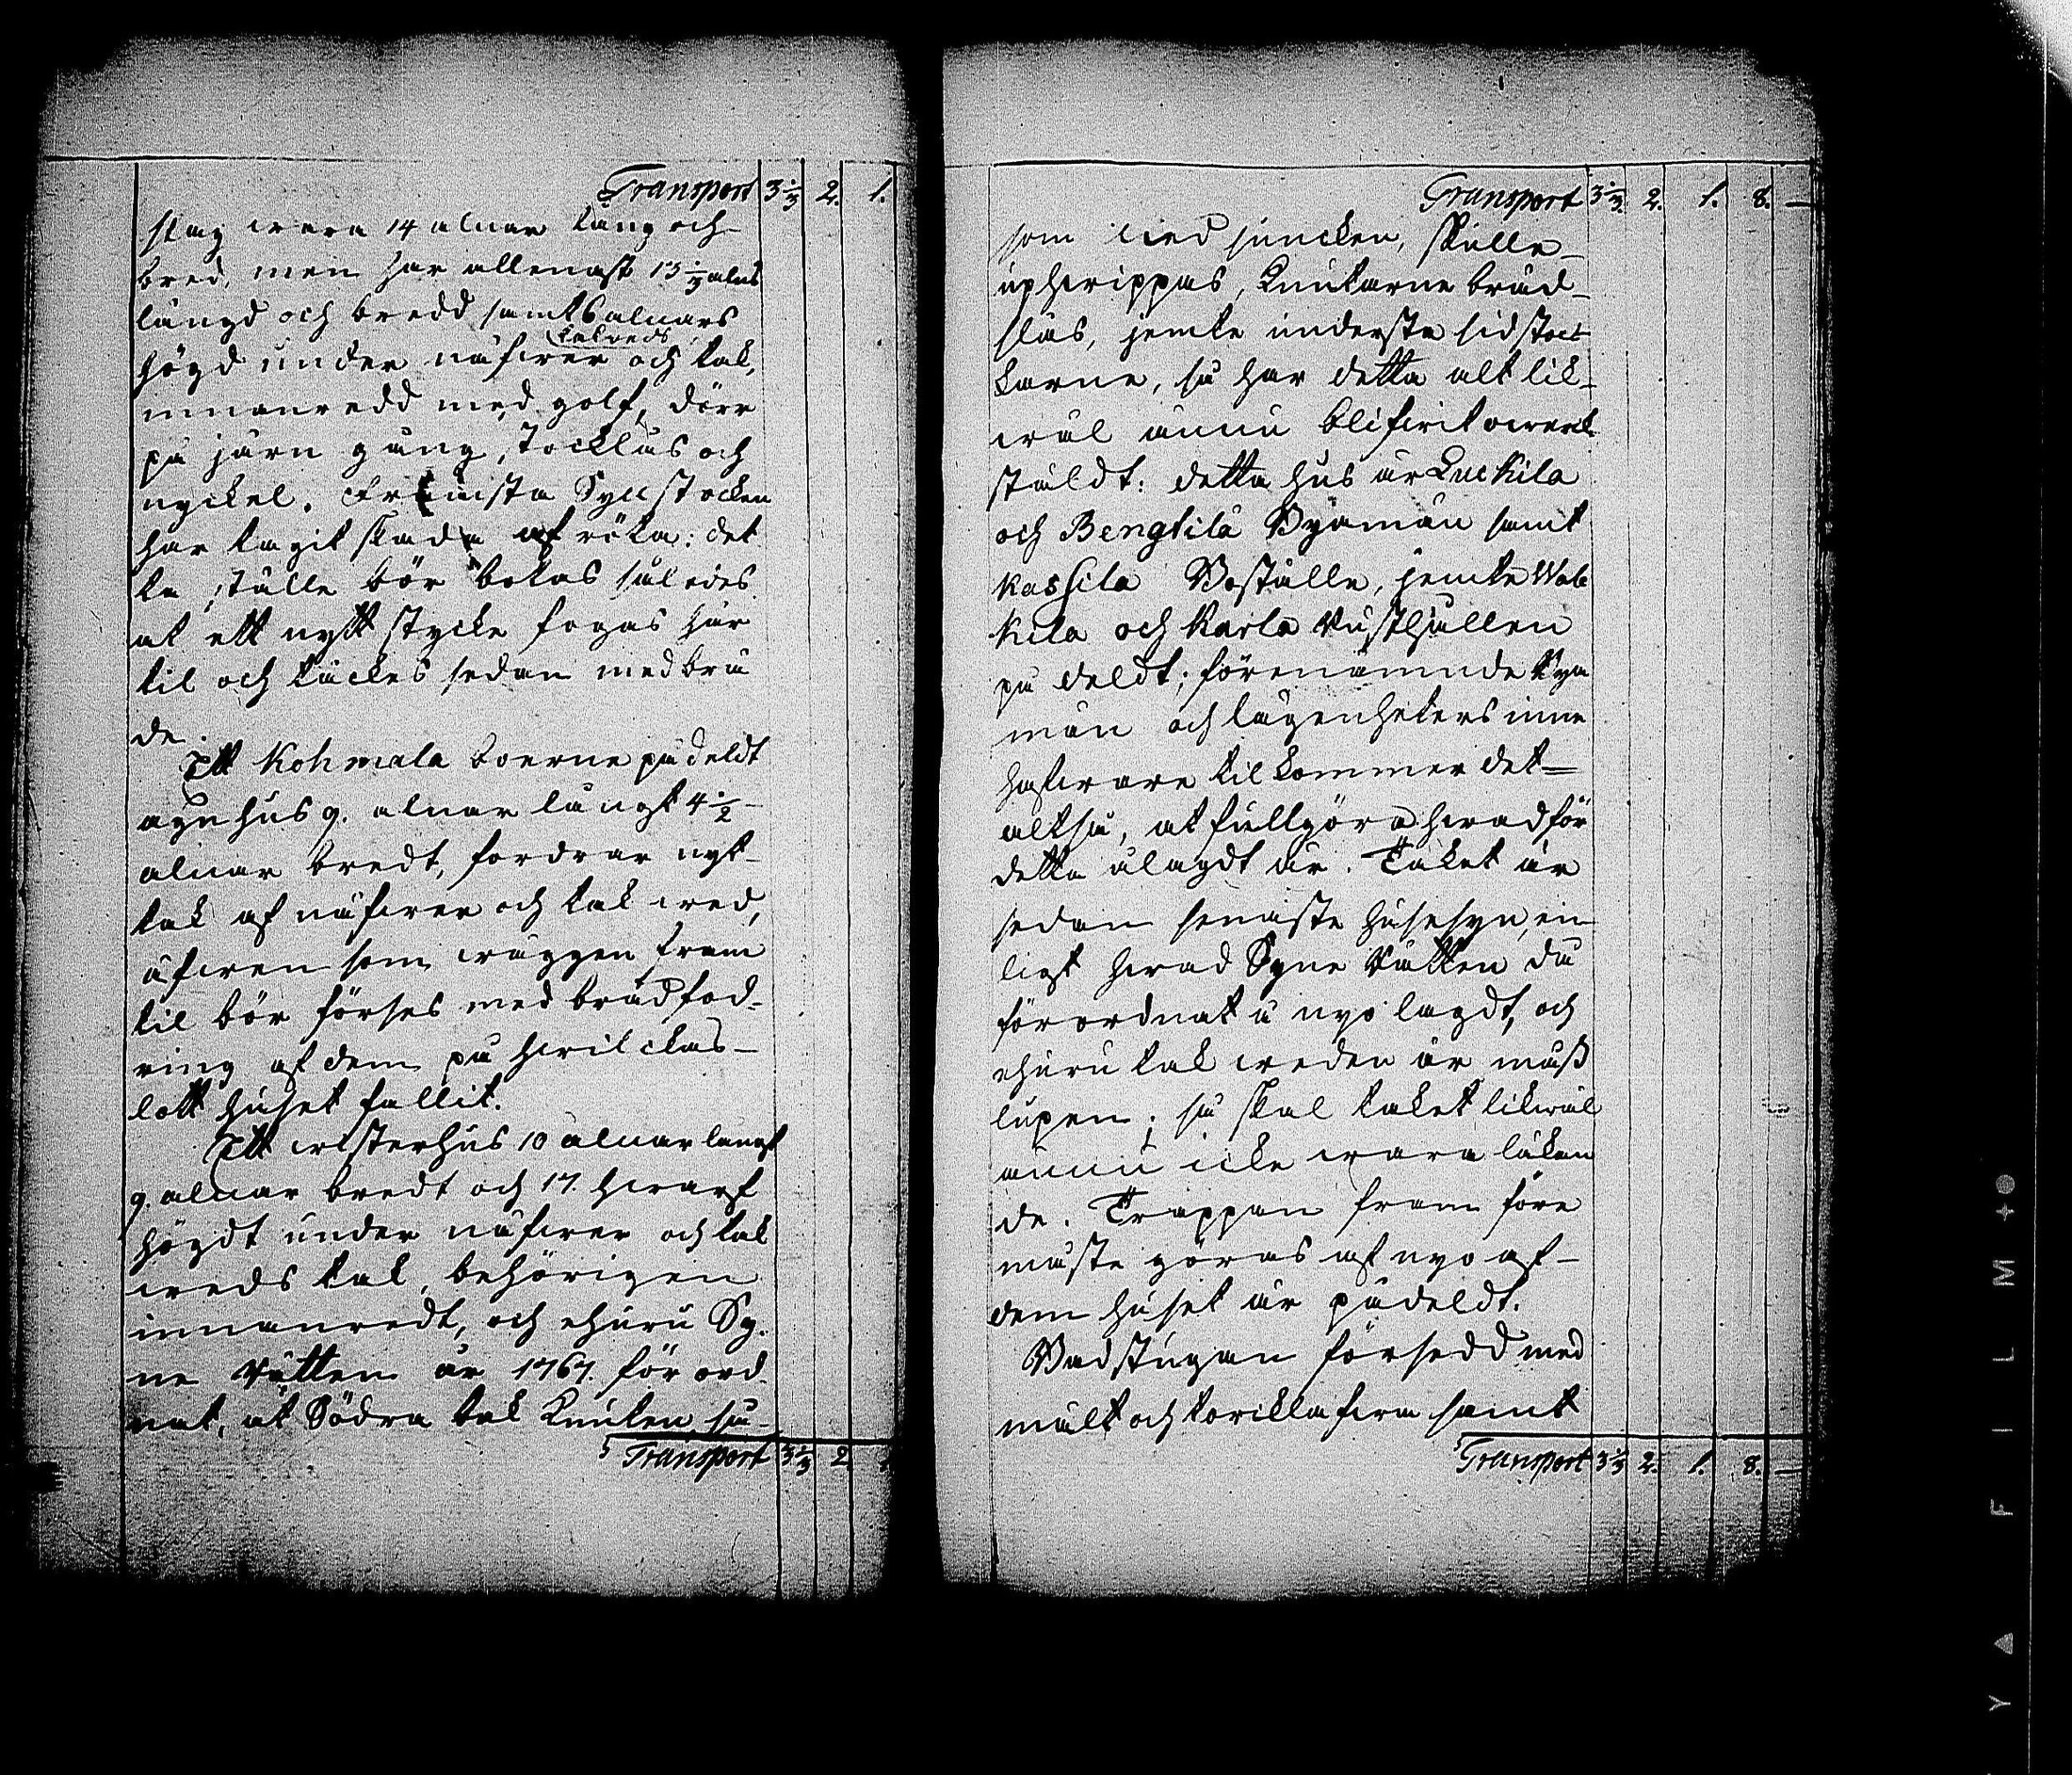 Transport 3 1/3 2. 1.
slag wara 14 alnar lång och
bred, men har allenast 13 1/3 alns
längd och bredd samt 6 alnars
takveds
högd under näfwer och tak,
innanredd med golf, dörr
på järn gång, Tocklås och
nyckel. Främsta Syllstocken
har tagit skada af röta: det
ta ställe bör botas således
at ett nytt stycke fogas här
til och täckes sedan med brä
de.
Ett Kohmala boerne pådeldt
agnhus 9. alnar långt 4 1/2
alnar bredt, fordrar nytt
tak af näfwer och takwed,
äfwen som wäggen fram
til bör förses med brädfod-
ring af dem på hwilckas
lott huset fallit.
Ett wisterhus 10 alnar långt
9. alnar bredt och 17. hwarf
högdt under näfwer och tak
weds tak, behörigen
innanredt, och ehuru Sy-
ne Rätten år 1767. förord
nat, at Södra tak Knuten, så-
Transport 3 1/3 2
Transport 3 1/3 2. 1. 8. —
som nedsuncken, skulle
uphwippas, Knutarne bräd-
slås, jemte understa sidstoc
karne, så har detta alt lik-
wäl ännu blifwit owerck
stäldt: detta hus är Luckila
och Bengtilä Byamän samt
Kassila Boställe, jemte Wab
kila och Karla Rusthållen
på deldt; förenämnde Bya
män och lägenheters inne
hafware tilkommer det
altså, at fullgöra hwad för
detta ålagdt är. Taket är
sedan senaste husesyn, en
ligt hwad Syne Rätten då
förordnat å nyo lagdt, och
ehuru takweden är mass
lupen; så skal taket likwäl
ännu icke wara läkan
de. Trappan framföre
måste göras af nyo af
dem huset är pådeldt.
Badstugan försedd med
mält och torcklafwa samt
Transport 3 1/3 2. 1. 8. —
FILM